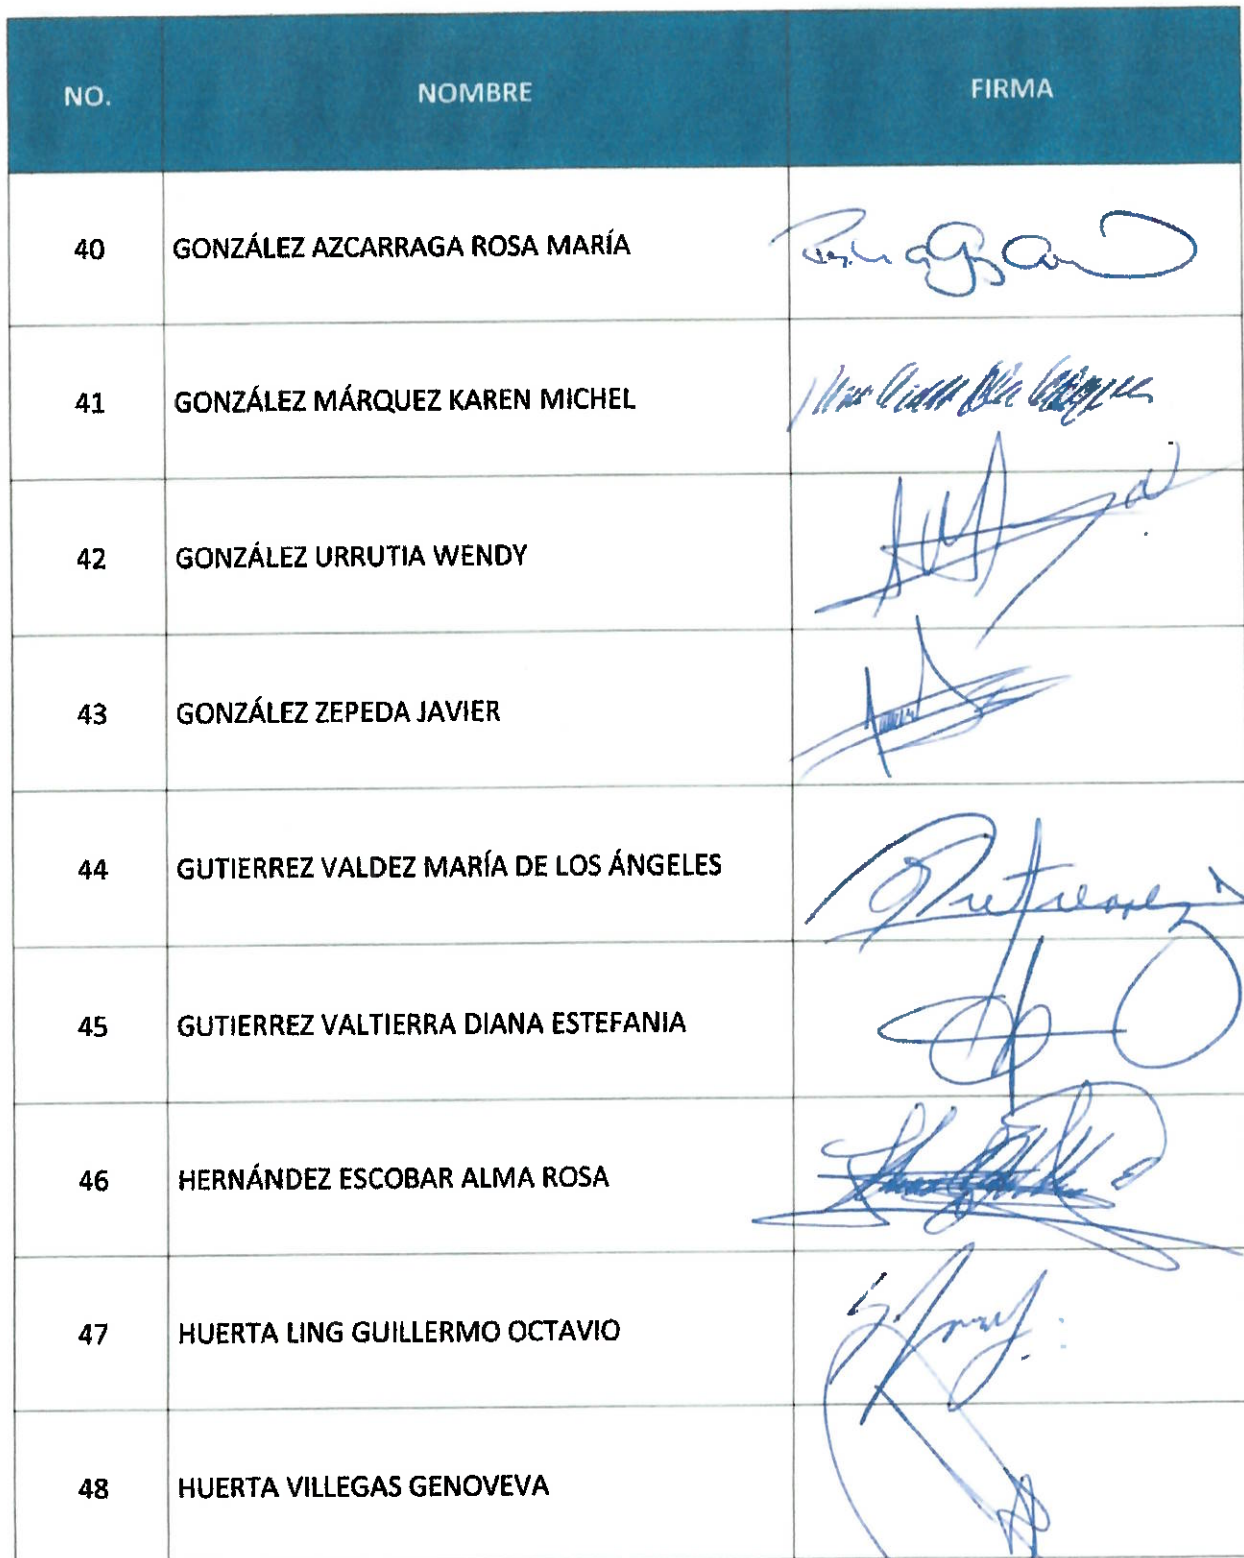 NO. NOMBRE FIRMA
40 GONZÁLEZ AZCARRAGA ROSA MARÍA
41 GONZÁLEZ MÁRQUEZ KAREN MICHEL
42 GONZÁLEZ URRUTIA WENDY
43 GONZÁLEZ ZEPEDA JAVIER
44 GUTIERREZ VALDEZ MARÍA DE LOS ÁNGELES
45 GUTIERREZ VALTIERRA DIANA ESTEFANIA
46 HERNÁNDEZ ESCOBAR ALMA ROSA
47 HUERTA LING GUILLERMO OCTAVIO
48 HUERTA VILLEGAS GENOVEVA